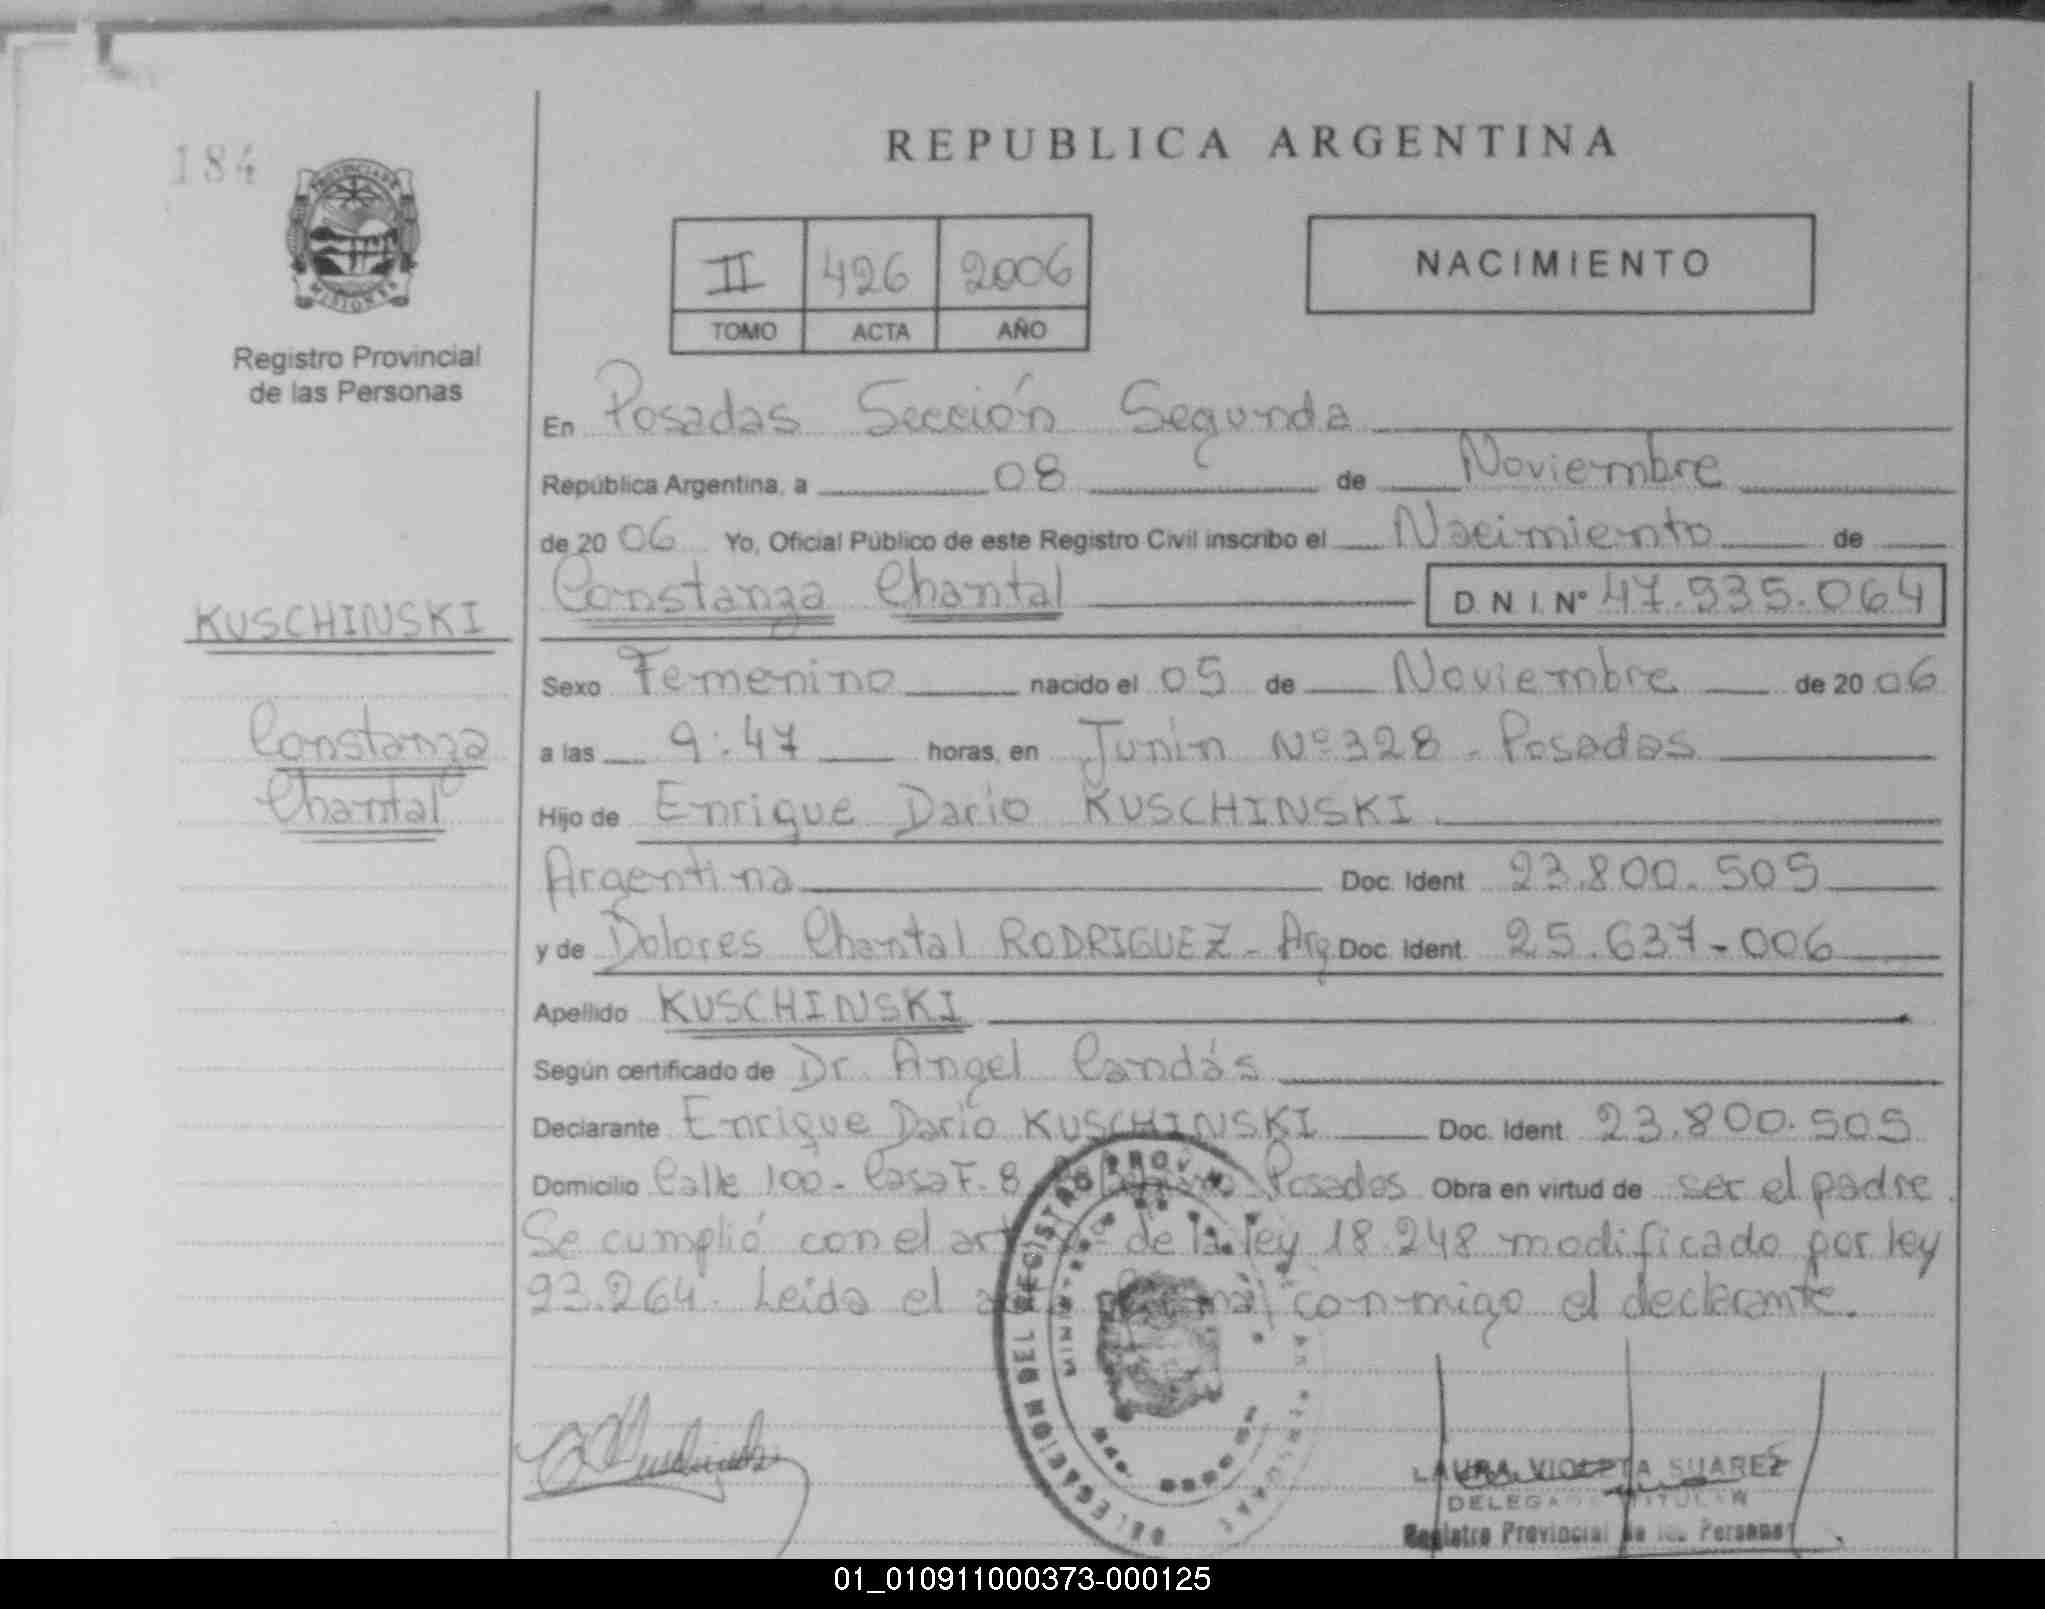 184
PROVINCIA DE
MISIONES
Registro Provincial
de las Personas
REPUBLICA ARGENTINA
II 426 2006
TOMO ACTA AÑO
NACIMIENTO
En Posadas Sección Segunda
República Argentina, a 08 de Noviembre
de 2006 Yo, Oficial Público de este Registro Civil inscribo el Nacimiento de
Constanza Chantal D.N.I. Nº 47.935.064
KUSCHINSKI
Constanza
Chantal
Sexo Femenino nacido el 05 de Noviembre de 2006
a las 9:47 horas, en Junín Nº 328 - Posadas
Hijo de Enrique Dario KUSCHINSKI
Argentina Doc. Ident 23.800.505
y de Dolores Chantal RODRIGUEZ - Arg Doc. Ident. 25.637-006
Apellido KUSCHINSKI
Según certificado de Dr. Angel Candás
Declarante Enrique Dario KUSCHINSKI Doc. Ident 23.800.505
Domicilio Calle 100 - Casa F. 8 Posadas Obra en virtud de ser el padre.
Se cumplió con el art de la ley 18.248 modificado por ley
23.264. Leída el conmigo el declarante.
DELEGACION DEL REGISTRO PROV.
LAURA VIOLETA SUAREZ
DELEGADA TITULAR
Registro Provincial de las Personas
01_010911000373-000125